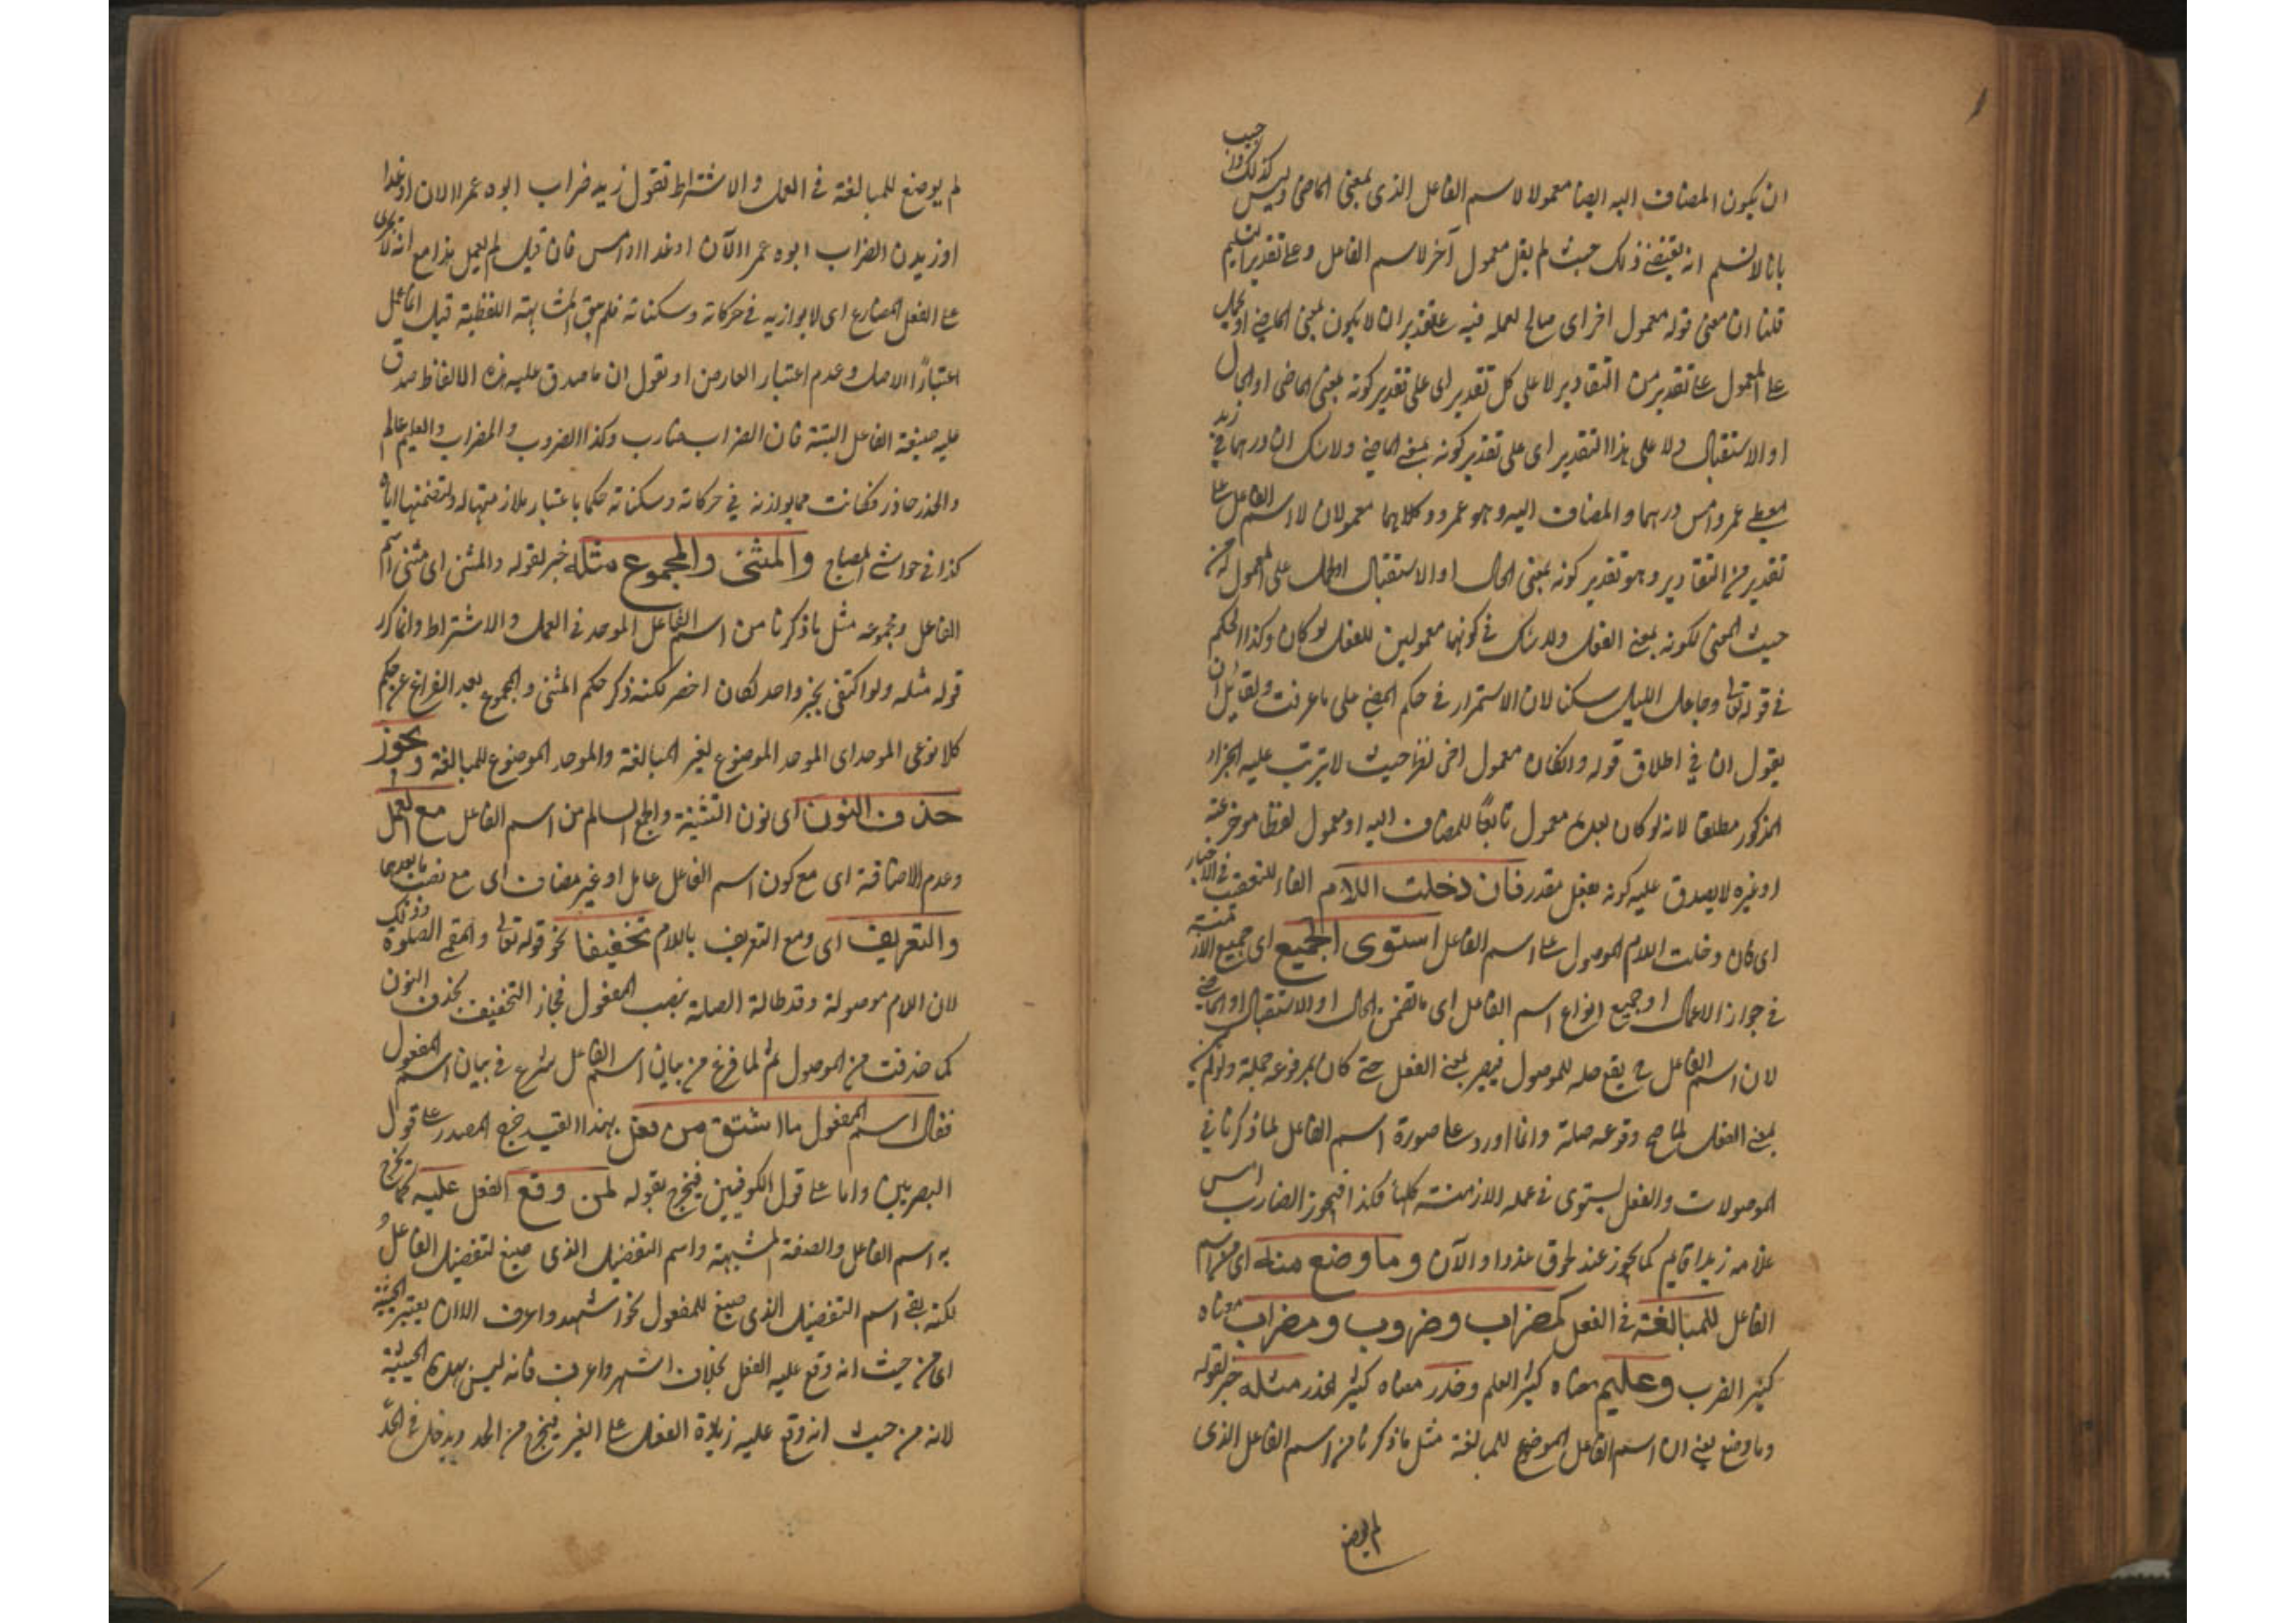 ان يكون المضاف اليه ايضا معمولا لاسم الفاعل الذى بمعنى الماضى وليس كذلك واجيب
بانا لا نسلم انه يقتضى ذلك حيث لم يقل معمول آخر لاسم الفاعل وعلى تقدير التسليم
قلنا ان معنى قوله معمول اخر اى صالح لعمله فيه على تقدير ان لا يكون بمعنى الماضى او يحمل
على المعمول على تقدير من التقادير لا على كل تقدير اى على تقدير كونه بمعنى الماضى او الحال
او الاستقبال ولا على هذا التقدير اى على تقدير كونه بمعنى الماضى ولا شك ان درهما فى زيد
معطى عمرو امس درهما والمضاف اليه وهو عمرو وكلاهما معمولان لاسم الفاعل على
تقدير من التقادير وهو تقدير كونه بمعنى الحال او الاستقبال على المعمول له من
حيث المعنى لكونه بمعنى الفعل ولا شك فى كونهما معمولين للفعل لو كان وكذا الحكم
فى قوله تعالى وجاعل الليل سكنا لان الاستمرار فى حكم المضى على ما عرفت ولقائل ان
يقول ان فى اطلاق قوله وان كان معمول اخر نظرا حيث لا يترتب عليه الجزاء
المذكور مطلقا لانه لو كان بعده معمول تابعا للمضاف اليه او معمول لفظا موخر عنه
او غيره لا يصدق عليه كونه بفعل مقدر فان دخلت اللام الفاء للتعقيب فى الاخبار
اى كان دخلت اللام الموصول على اسم الفاعل استوى الجميع اى جميع الازمنة
فى جواز الاعمال او جميع انواع اسم الفاعل اى ما تضمن الحال او الاستقبال او الماضى
لان اسم الفاعل ح يقع صله للموصول فيصير بمعنى الفعل حتى كان بمرفوعه جملة ولو لم يكن
بمعنى الفعل لما صح وقوعه صلة وانما اورد على صورة اسم الفاعل لما ذكرنا فى
الموصولات والفعل يستوى فى عمله الازمنة كلها فكذا فيجوز الضارب امس
غلامه زيدا قايم كما يجوز عند لحوق غدوا والآن وما وضع منه اى من اسم
الفاعل للمبالغة فى الفعل كضراب وضروب ومضراب معناه
كثير الضرب وعليم معناه كثير العلم وحذر معناه كثير الحذر مثله خبر لقوله
وما وضع يعنى ان اسم الفاعل الموضوع للمبالغة مثل ما ذكرنا من اسم الفاعل الذى
لم يوضع
لم يوضع للمبالغة فى العمل والاشتراط تقول زيد ضراب ابوه عمرا الان او غدا
او زيدن الضراب ابوه عمرا الآن او غدا او امس فان قيل لم يعمل هذا مع انه لا يجرى
على الفعل المضارع اى لا يوازيه فى حركاته وسكناته فلم يبق المشابهته اللفظية قيل انما عمل
اعتبارًا الاصل وعدم اعتبار العارض او نقول ان ما صدق عليه هذه الالفاظ صدق
عليه صيغة الفاعل البتة فان الضراب ضارب وكذا الضروب والمضراب والعليم عالم
والحذر حاذر فكانت مما يوازنه فى حركاته وسكناته حكما باعتبار ملازمتها له ولتضمنها اياه
كذا فى حواشى المصباح والمثنى والمجموع مثله خبر لقوله والمثنى اى مثنى اسم
الفاعل ومجموعه مثل ما ذكرنا من اسم الفاعل الموحد فى العمل والاشتراط وانما كرر
قوله مثله ولو اكتفى بخبر واحد لكان اخصر لكنه ذكر حكم المثنى والمجموع بعد الفراغ عن حكم
كلا نوعى الموحد اى الموحد الموضوع لغير المبالغة والموحد الموضوع للمبالغة ويجوز
حذف النون اى نون التثنية والجمع السالم من اسم الفاعل مع العمل
وعدم الاضافة اى مع كون اسم الفاعل عاملا وغير مضاف اى مع نصب ما بعدها
والتعريف اى ومع التعريف باللام تخفيفا نحو قوله تعالى والمقيمى الصلوة وذلك
لان اللام موصولة وقد طالة الصلة بنصب المفعول فجاز التخفيف بحذف النون
كما حذفت من الموصول ثم لما فرغ من بيان اسم الفاعل شرع فى بيان اسم المفعول
فقال اسم المفعول ما اشتق من فعل بهذا القيد خرج المصدر على قول
البصريين واما على قول الكوفيين فيخرج بقوله لمن وقع الفعل عليه كما يخرج
به اسم الفاعل والصفة المشبهة واسم التفضيل الذى صيغ لتفضيل الفاعل و
لكنه بقى اسم التفضيل الذى صيغ للمفعول نحو اشهر واعرف الا ان يعتبر الحيثية
اى من حيث انه وقع عليه الفعل بخلاف اشهر واعرف فانه ليس بهذه الحيثية
لانه من حيث انه وقع عليه زيادة الفعل على الغير فيخرج من الحد ويدخل فى الحدّ